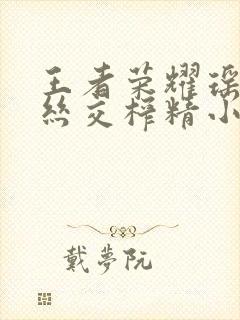 王者荣耀瑶
丝交榨精小
戴夢阮